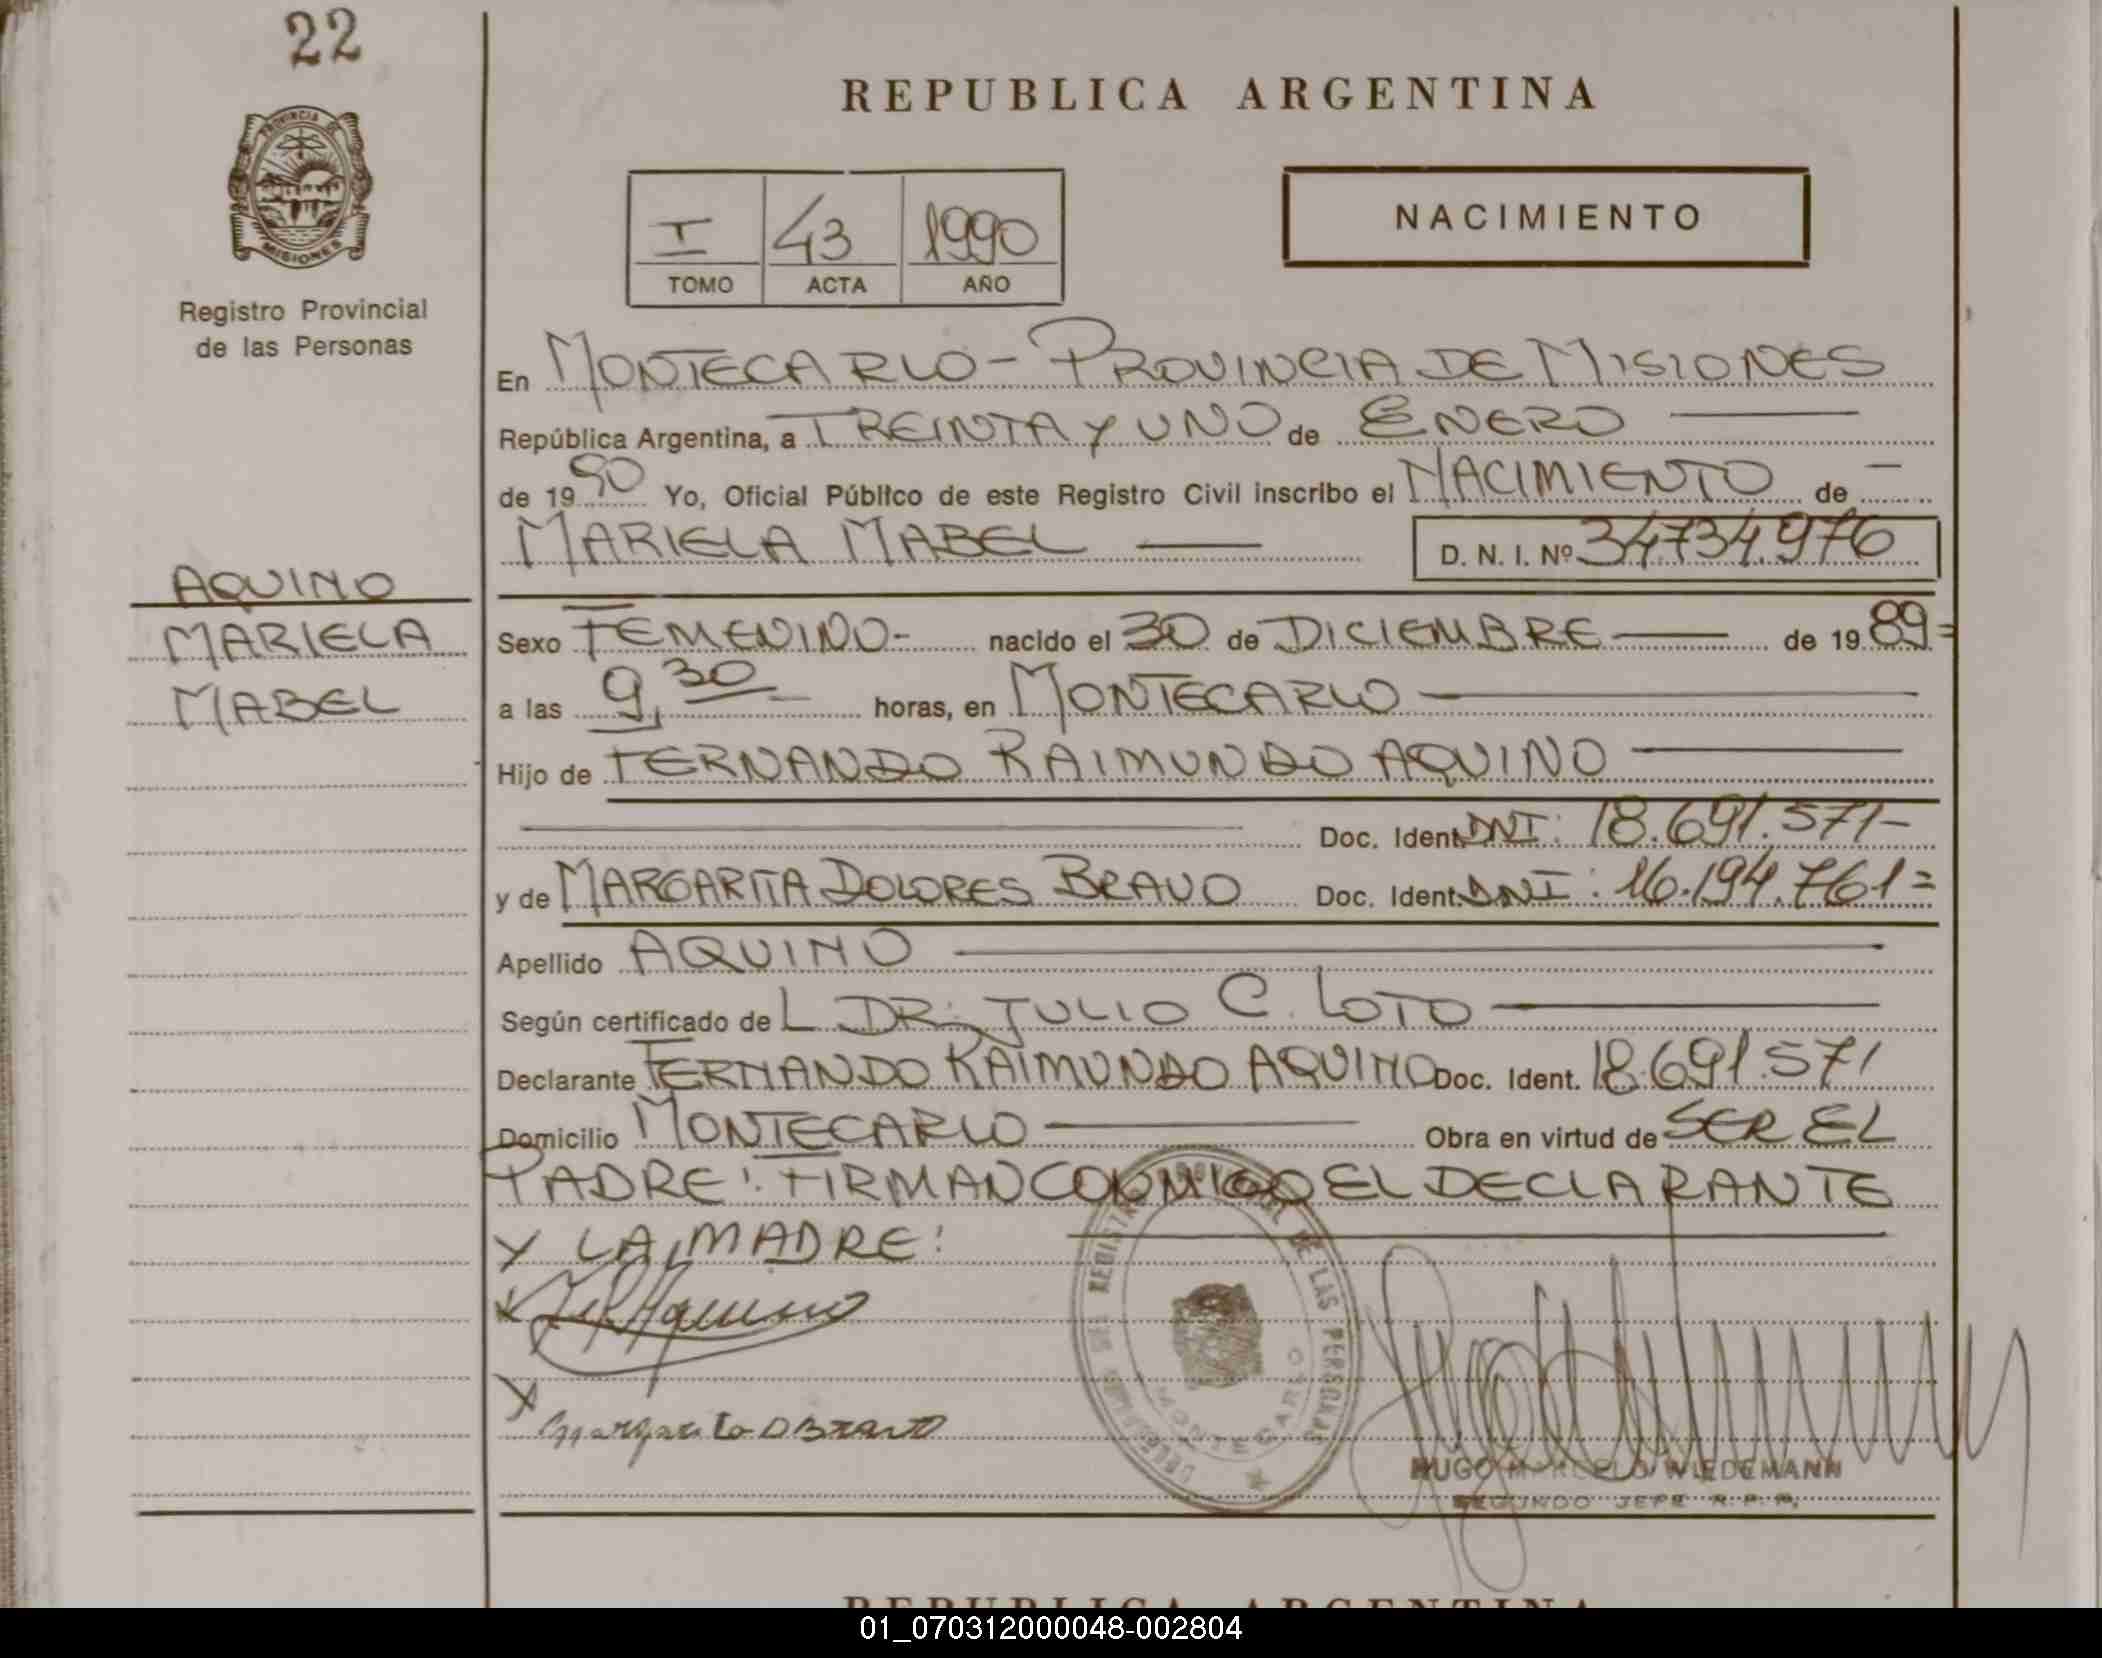 22
PROVINCIA DE
MISIONES
Registro Provincial
de las Personas
AQUINO
MARIELA
MABEL
REPUBLICA ARGENTINA
I 43 1990
TOMO ACTA AÑO
NACIMIENTO
En MONTECARLO - PROVINCIA DE MISIONES
República Argentina, a TREINTA Y UNO de ENERO
de 1990 Yo, Oficial Público de este Registro Civil inscribo el NACIMIENTO de -
MARIELA MABEL D. N. I. Nº 34734.976
Sexo FEMENINO- nacido el 30 de DICIEMBRE de 1989=
a las 9,30 horas, en MONTECARLO
Hijo de FERNANDO RAIMUNDO AQUINO
Doc. Ident. DNI: 18.691.571-
y de MARGARITA DOLORES BRAVO Doc. Ident. DNI: 16.194.761=
Apellido AQUINO
Según certificado de L DR: JULIO C. LOTO
Declarante FERNANDO RAIMUNDO AQUINO Doc. Ident. 18.691.571
Domicilio MONTECARLO Obra en virtud de SER EL
PADRE: FIRMAN CONMIGO EL DECLARANTE
Y LA MADRE:
X Aquino
X
Margarita D Bravo
DELEGACION DEL REGISTRO PROVINCIAL DE LAS PERSONAS
MONTECARLO
HUGO MARCELO WIEDEMANN
SEGUNDO JEFE R. P. P.
REPUBLICA ARGENTINA
01_070312000048-002804